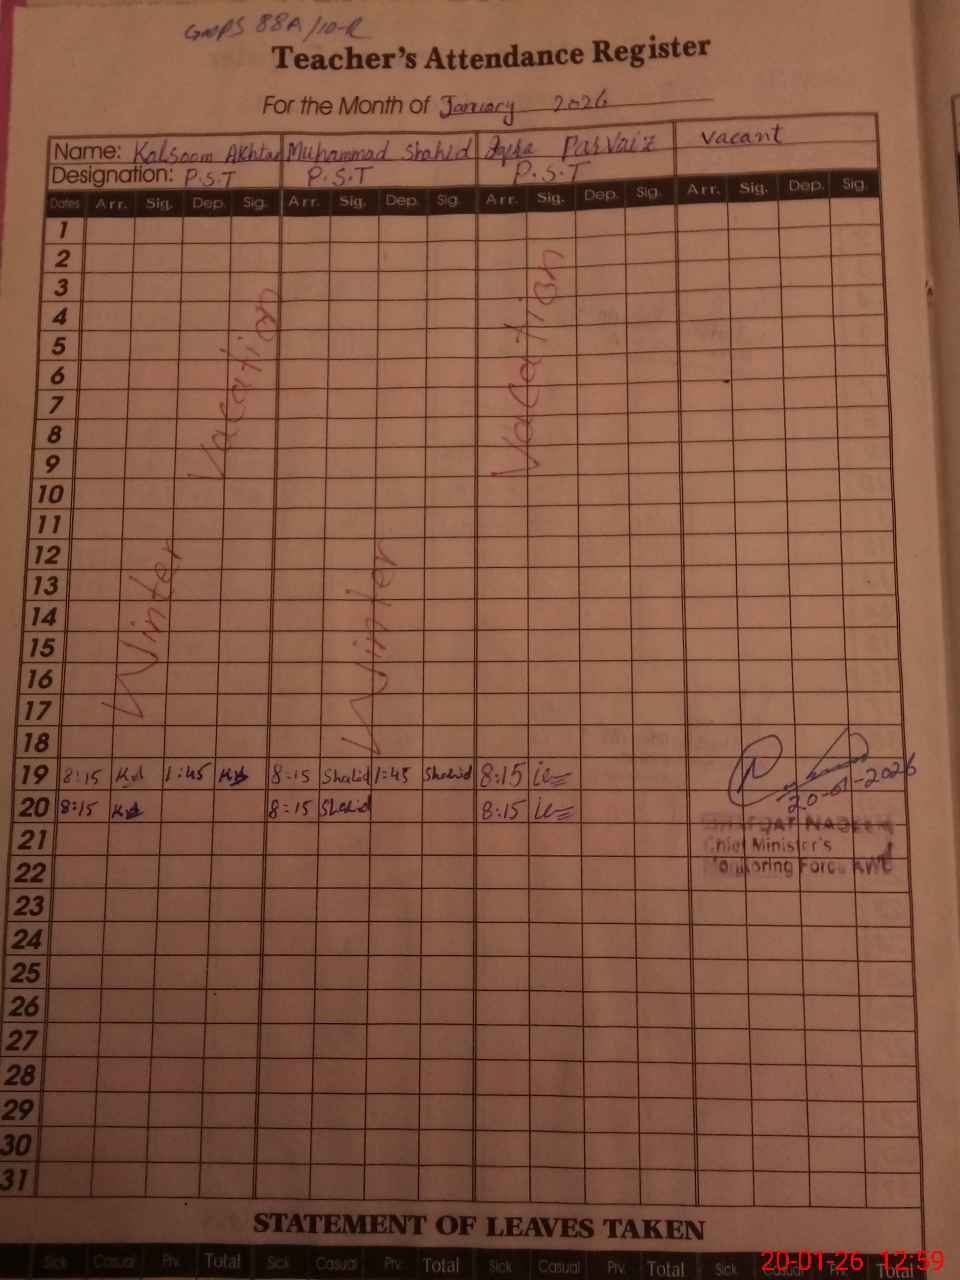 GMPS 88A/10-R
Teacher's Attendance Register
For the Month of January 2026
Name: Kalsoom Akhtar Muhammad Shahid Parvaiz vacant
Designation: P.S.T P.S.T P.S.T
Dates Arr. Sig. Dep. Sig. Arr. Sig. Dep. Sig. Arr. Sig. Dep. Sig. Arr. Sig. Dep. Sig.
1
2
3
4
5
6
7
8
9
10
11
12
13
14
15
16
17
18
Winter Vacation Winter Vacation
19 8:15 1:45 8:15 Shahid 1:45 Shahid 8:15
20 8:15 8:15 Shahid 8:15
20-01-2026
21
Chief Minister's
22
Monitoring Force
23
24
25
26
27
28
29
30
31
STATEMENT OF LEAVES TAKEN
Sick Casual Prv. Total Sick Casual Prv. Total Sick Casual Prv. Total Sick Casual Prv. Total
20-01-26 12:59